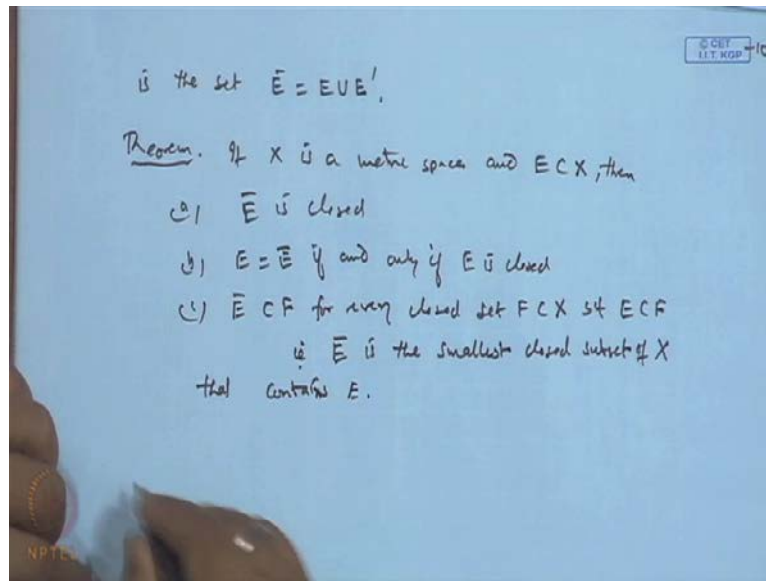 © CET
I.I.T. KGP
-10
is the set Ē = E U E′.
Theorem. If X is a metric space and E ⊂ X, then
a) Ē is closed
b) E = Ē if and only if E is closed
c) Ē ⊂ F for every closed set F ⊂ X st E ⊂ F
ie Ē is the smallest closed subset of X
that contains E.
NPTEL